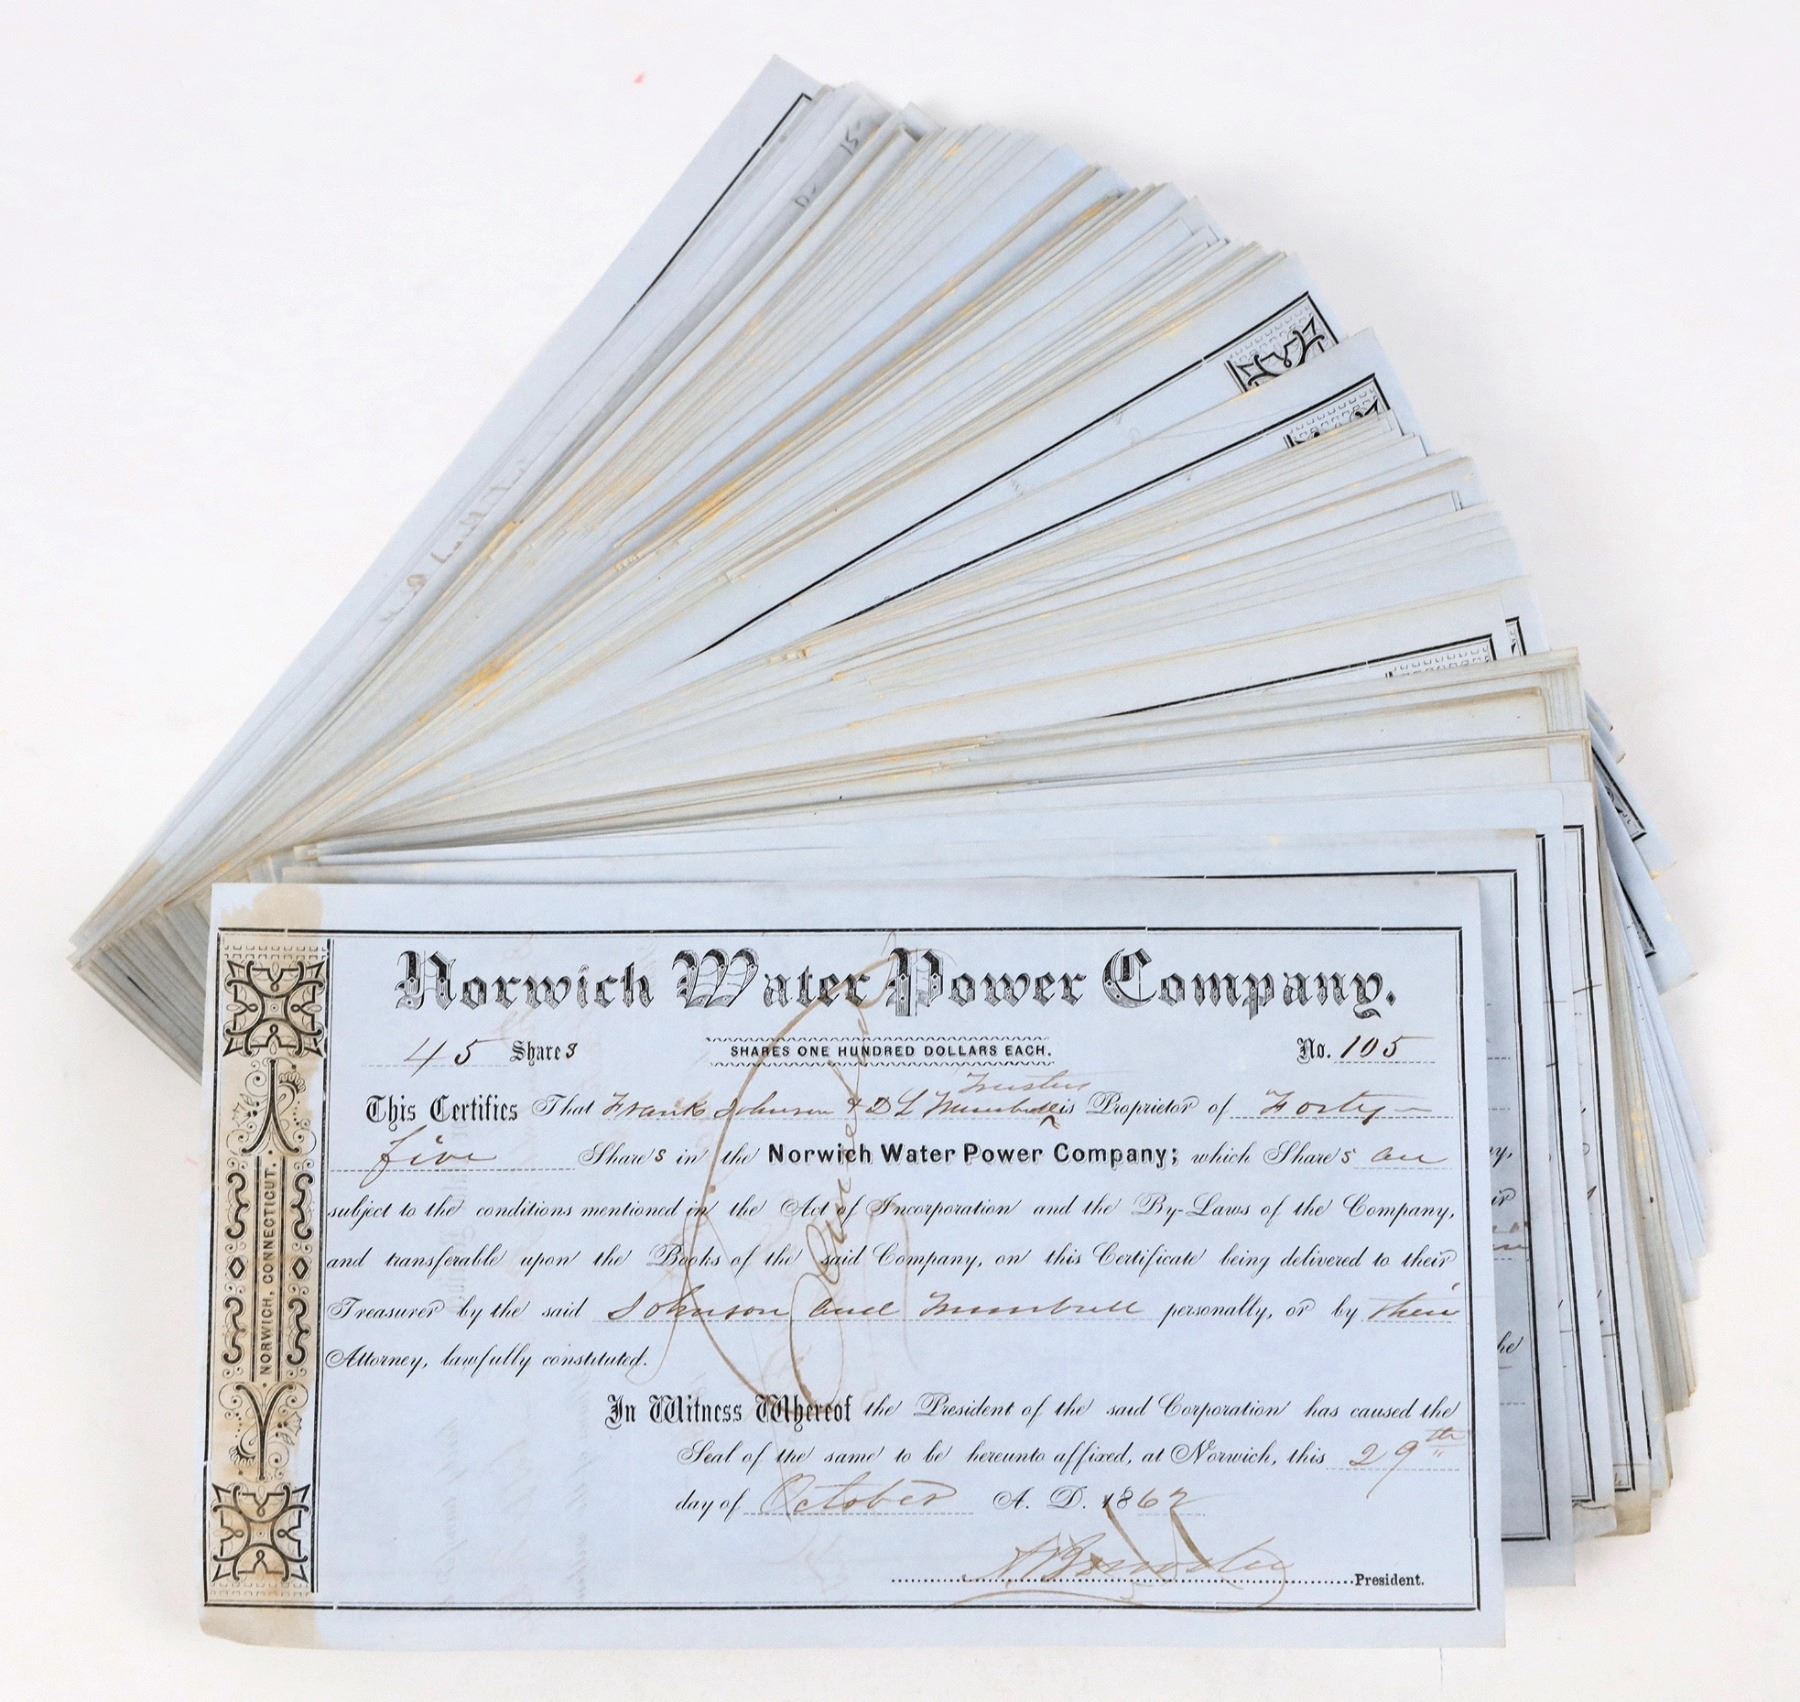 Norwich Water Power Company.
45 Shares SHARES ONE HUNDRED DOLLARS EACH. No. 105
Trustees
This Certifies That Frank Johnson & D L Trumbull is Proprietor of Forty-
five Shares in the Norwich Water Power Company; which Shares are
subject to the conditions mentioned in the Act of Incorporation and the By-Laws of the Company,
and transferable upon the Books of the said Company, on this Certificate being delivered to their
Treasurer by the said Johnson and Trumbull personally, or by their
Attorney, lawfully constituted.
In Witness Whereof the President of the said Corporation has caused the
Seal of the same to be hereunto affixed, at Norwich, this 29th
day of October A. D. 1862
President.
NORWICH, CONNECTICUT.
Cancelled
15
ny,
he